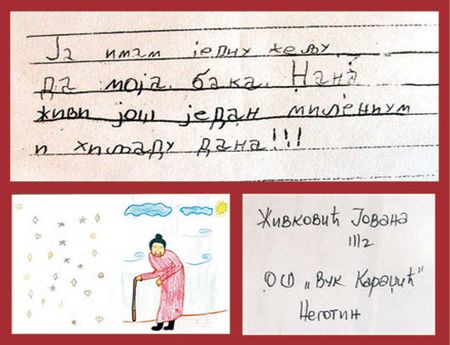 Ја имам једну жељу
да моја. бака. Нана
живи још један миленијум
и хиљаду дана!!!
Живковић Јована
III2
ОШ „Вук Караџић"
Неготин